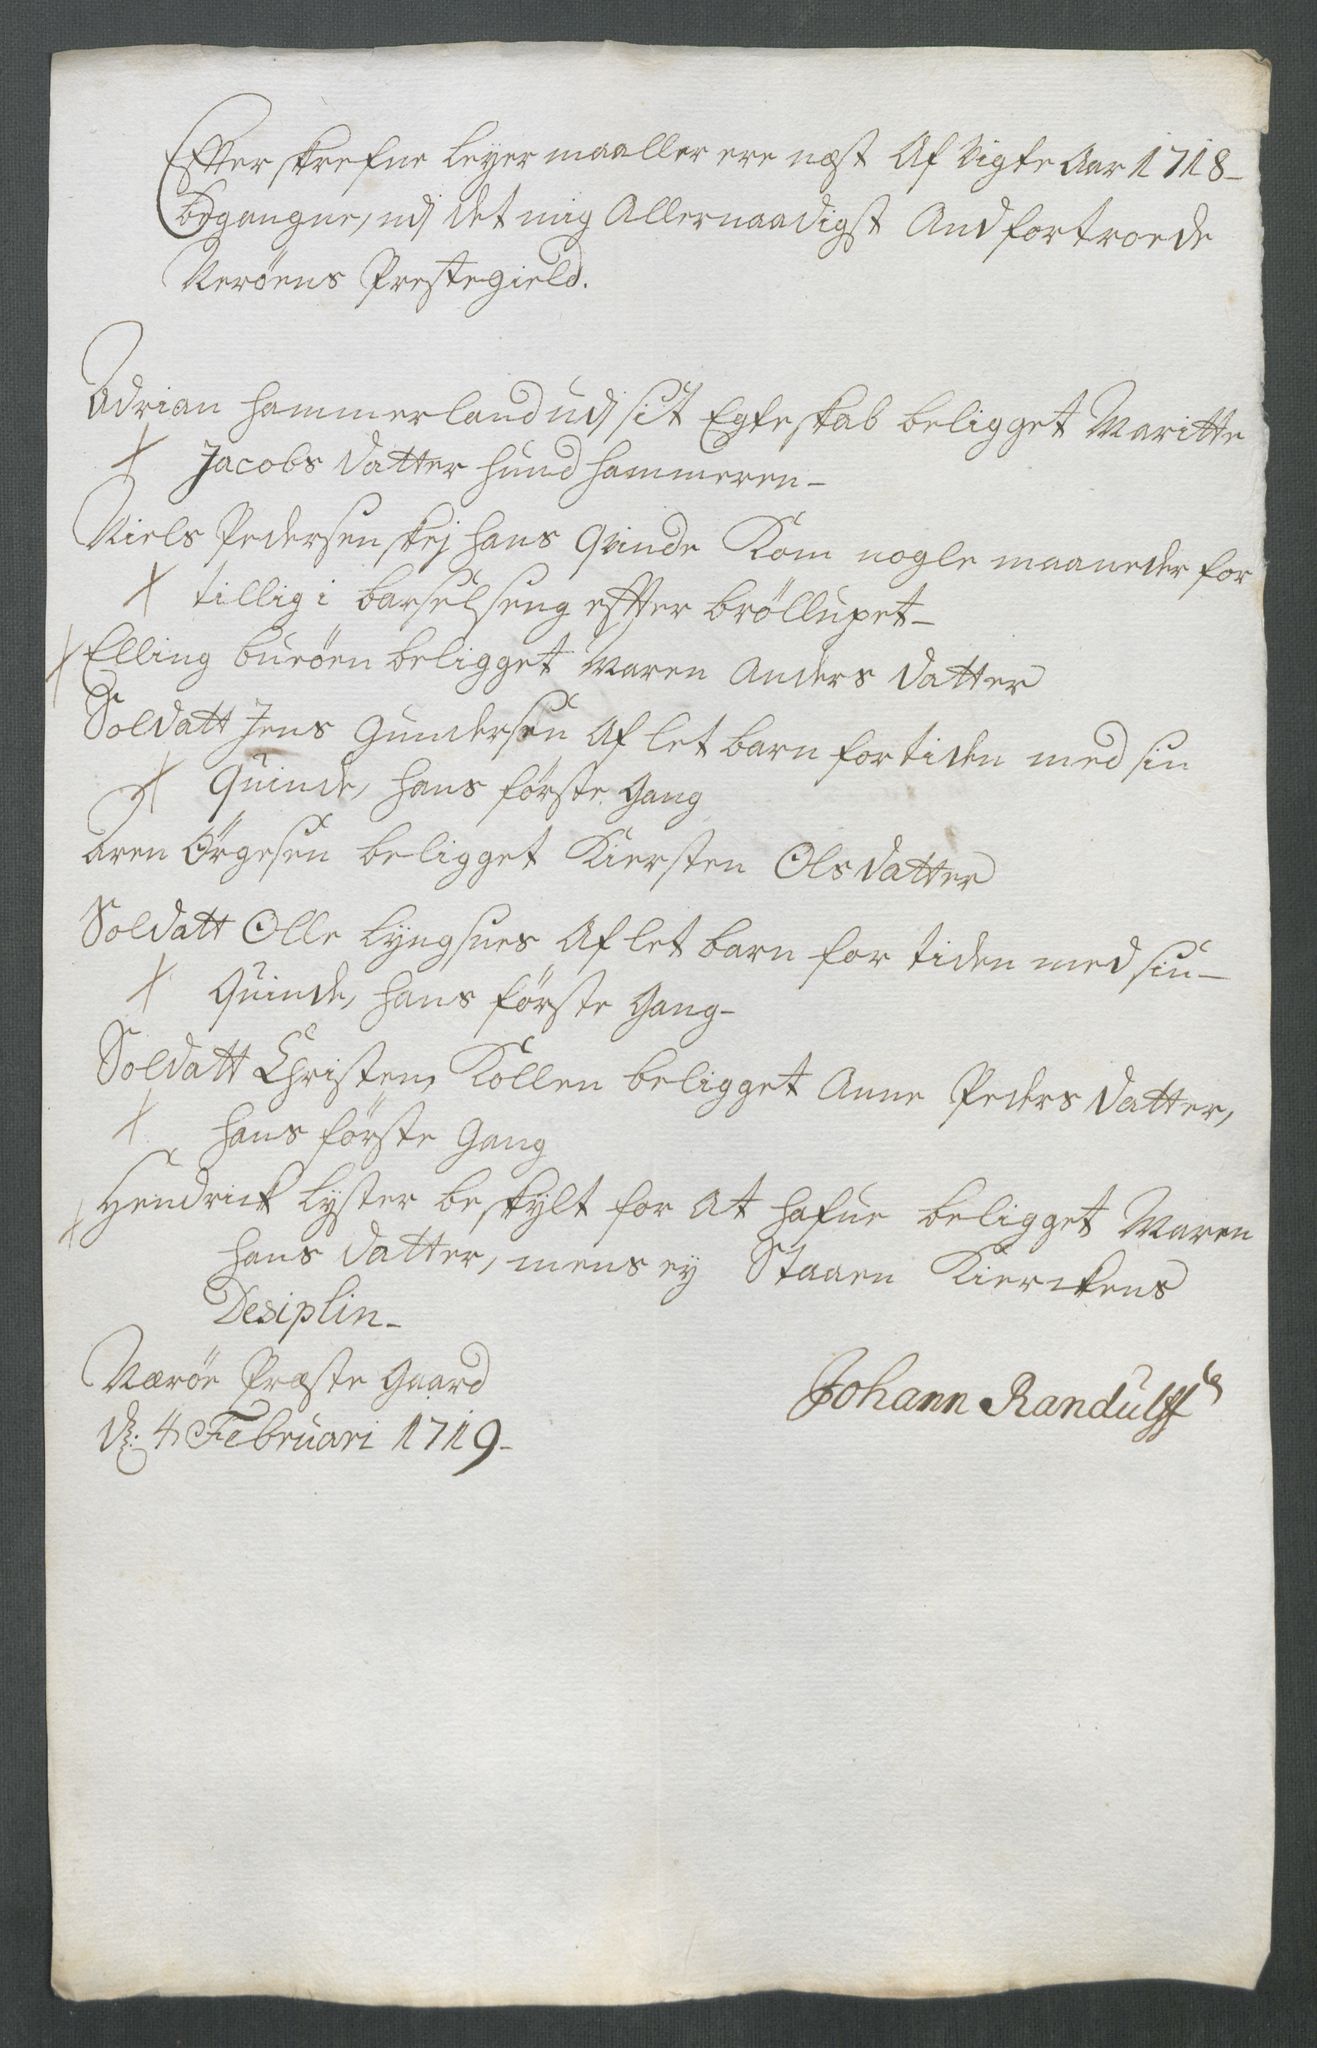 Effter skrefne leyermaaller ere næst Afvigte Aar 1718-
begangne, udj det mig Allernaadigst Andfortroede
Neröens Prestegield.
Adrian Hammerland udj sit Egteskab beligget Maritte
Jacobs datter Hundhammeren-
Niels Pedersen skej hans Qvinde Kom nogle maaneder for
tillig i barselseng effter brölluppet-
Elling buröen beligget Maren Anders datter
Soldatt Jens Gundersen Aflet barn for tiden med sin
Quinde, hans förste Gang
Aren Örgesen beligget Kiersten Ols datter
Soldatt Olle Lyngsnes Aflet barn for tiden med sin-
Quinde, hans förste Gang-
Soldatt Christen Kollen beligget Anne Peders datter,
hans förste Gang
Hendrick Lyster beskylt for At hafue beligget Maren
Hans datter, mens ey Staaen Kierckens
Desiplin-
Næröe Præste Gaard
d: 4 Februari 1719-
Johann Randulff